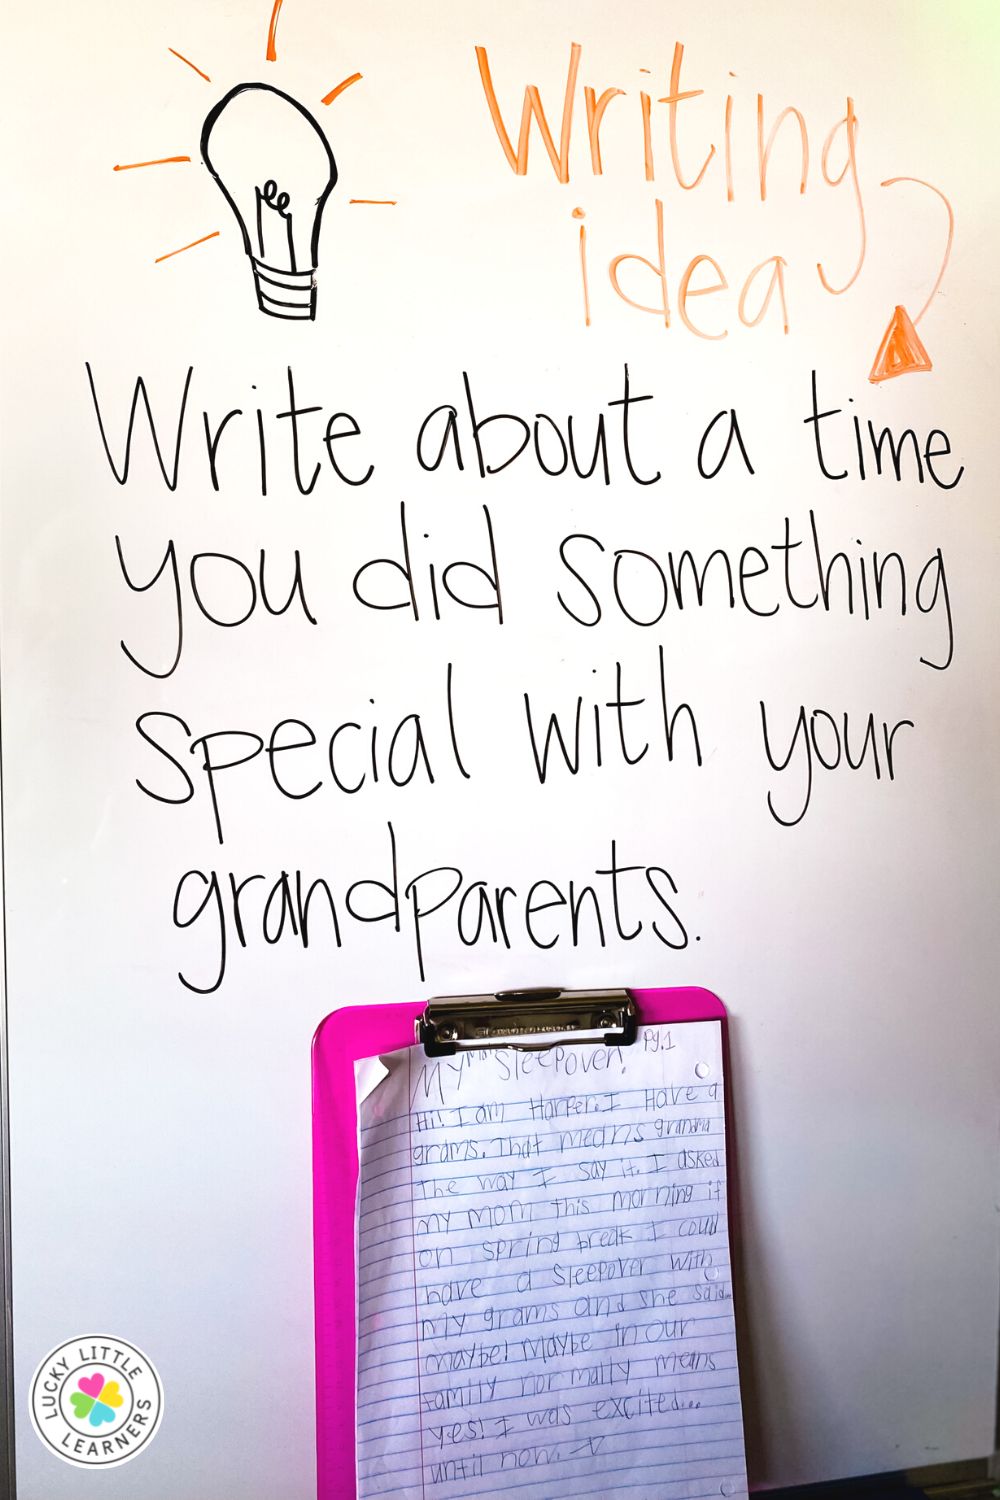 Writing
idea
Write about a time
you did something
special with your
grandparents.
Pg.1
My Sleepover!
Hi! I am Harper. I Have a
grams. That means grandma
The way I say it. I asked
my mom this morning if
on spring break I could
have a Sleepover with
my grams and she said...
maybe! Maybe in our
family normally means
yes! I was excited...
until now.
LUCKY LITTLE
LEARNERS